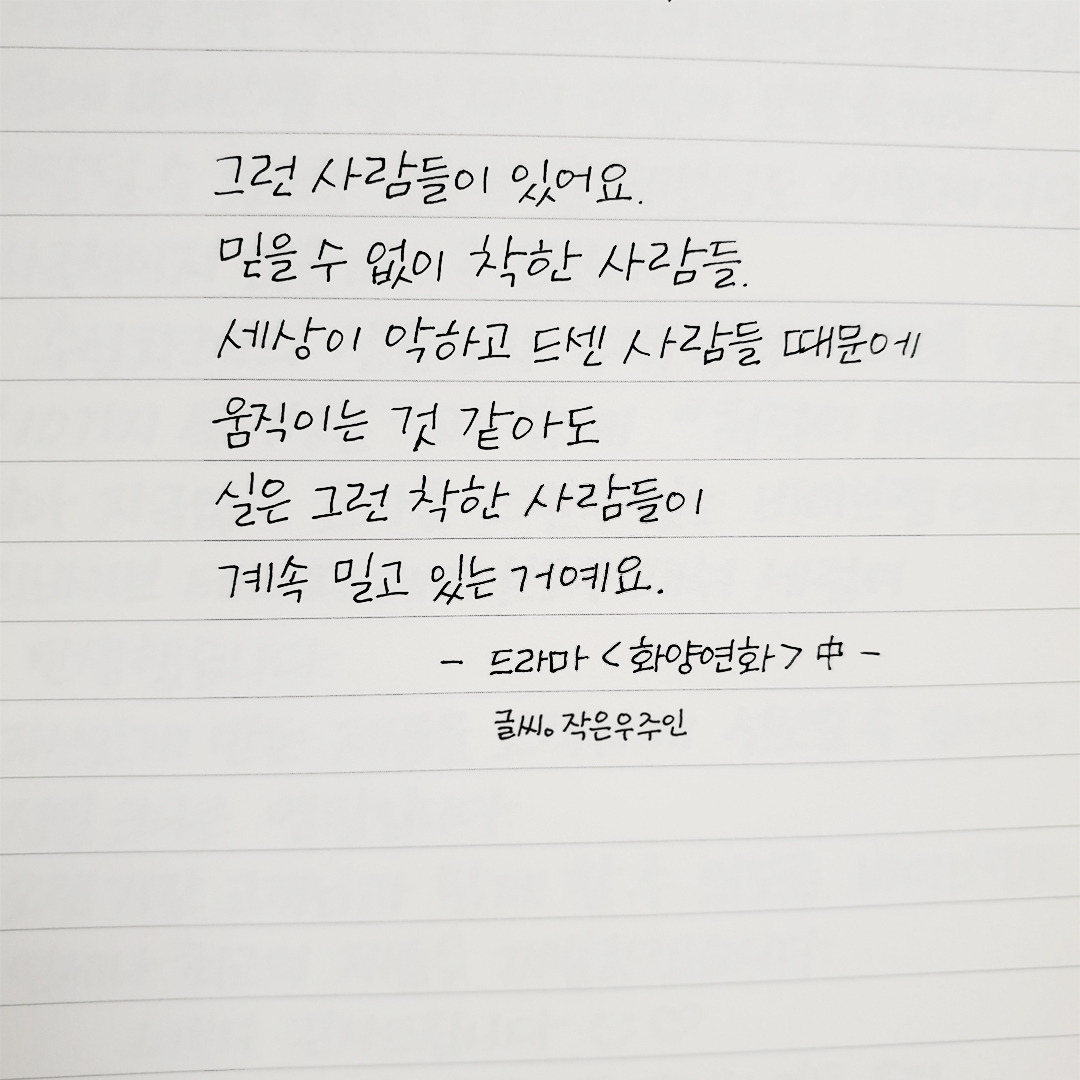 그런 사람들이 있어요.
믿을 수 없이 착한 사람들.
세상이 악하고 드센 사람들 때문에
움직이는 것 같아도
실은 그런 착한 사람들이
계속 밀고 있는 거예요.
- 드라마 <화양연화> 中 -
글씨。작은우주인